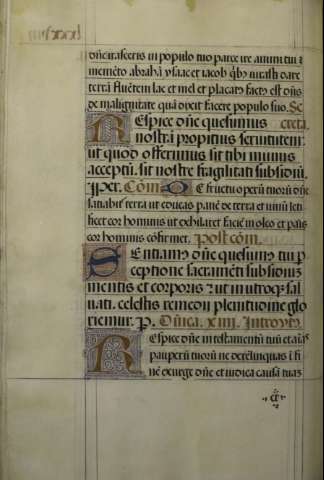 dñe irasceris in populo tuo parce ire animi tui ⁊
memẽto abrahã ysaac et iacob qb̃s iurasti dare
terrã fluẽtem lac et mel et placatꝰ factꝰ est dñs
de malignitate quã dixit facere populo suo. Se
REspice dñe quesumus creta.
nostrã propitius seruitutem:
ut quod offerimus sit tibi munus
acceptũ. sit nostre fragilitati subsidiũ.
p̱per. Cõm̃ DE fructu operũ tuorũ dñe
satiabitᷣ terra ut educas panẽ de terra et uinũ leti
ficet cor hominis ut exhilaret faciẽ in oleo et panis
cor hominis cõfirmet. Post cõm.
SEntiamꝰ dñe quesumꝰ tui p
ceptione sacramẽti subsidium
mentis et corporis ⁊ ut in utroqꝫ sal
uati. celestis remedii plenitudine glo
riemur. P. Dñica. xiii. Introytꝰ
REspice dñe in testamentũ tuũ et aĩas
pauperũ tuorũ ne derelinquas ĩ fi
nẽ exurge dñe et iudica causã tuam